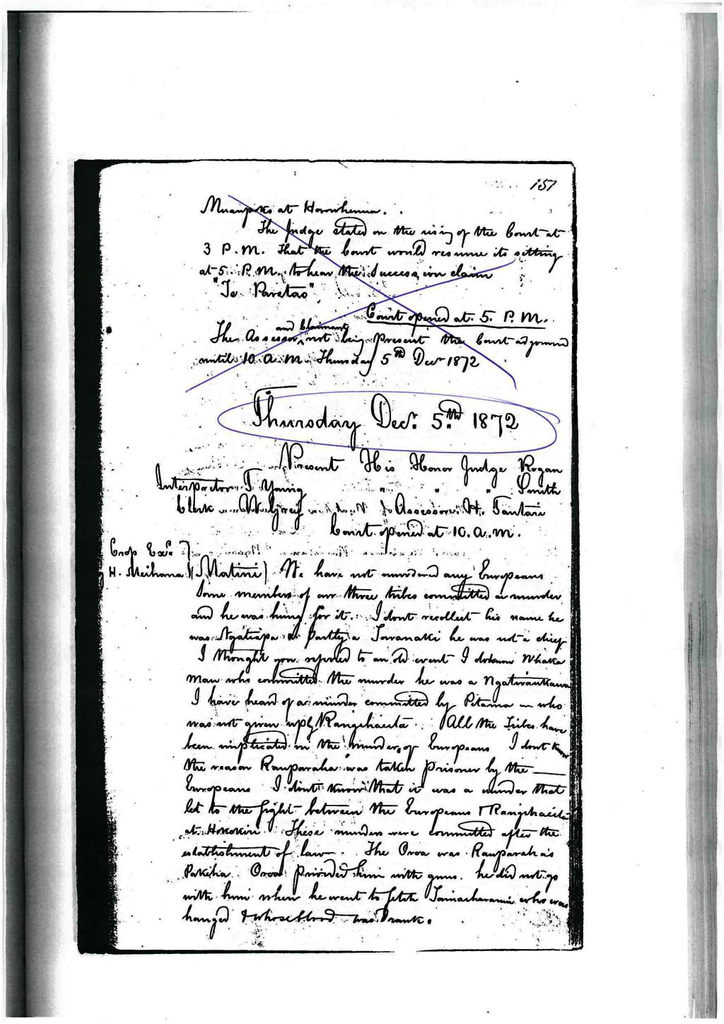 157
Muaupoko at Horowhenua.
The Judge stated on the rising of the Court at
3 P.M. that the Court would resume its sitting
at 5. P.M. to hear the Succession claim
"Te Paretao"
Court opened at 5. P.M.
The Assessor and Claimant not being Present the Court adjourned
until 10. a.m. Thursday 5th Decr 1872
Thursday Decr. 5th 1872
Present His Honor Judge Rogan
Interpretor T Young " " " Smith
Clerk W. Grey Assessor H. Tautari
Court opened at 10. a.m.
Crop Exn.
H. Meihana (Matini) We have not murdered any Europeans
Some members of our three tribes committed a murder
and he was hung for it. I dont recollect his name he
was Ngatiapa Partly a Taranaki he was not a chief
I thought you referred to an old event I do know
man who committed the murder he was a
I have heard of a murder committed by who
was not given up by Rangihaeata. All the Tribes have
been implicated in the murders of Europeans I dont know
the reason Rauparaha was taken prisoner by the
Europeans I dont know that it was a murder that
let to the fight between the Europeans & Rangihaeata
at These murders were committed after the
establishment of law. The Oroa was Rauparahas
Pakeha. Oroa provided him with guns. he did not go
with him when he went to fetch Tamaiharanui who was
hanged & whose blood was drank.